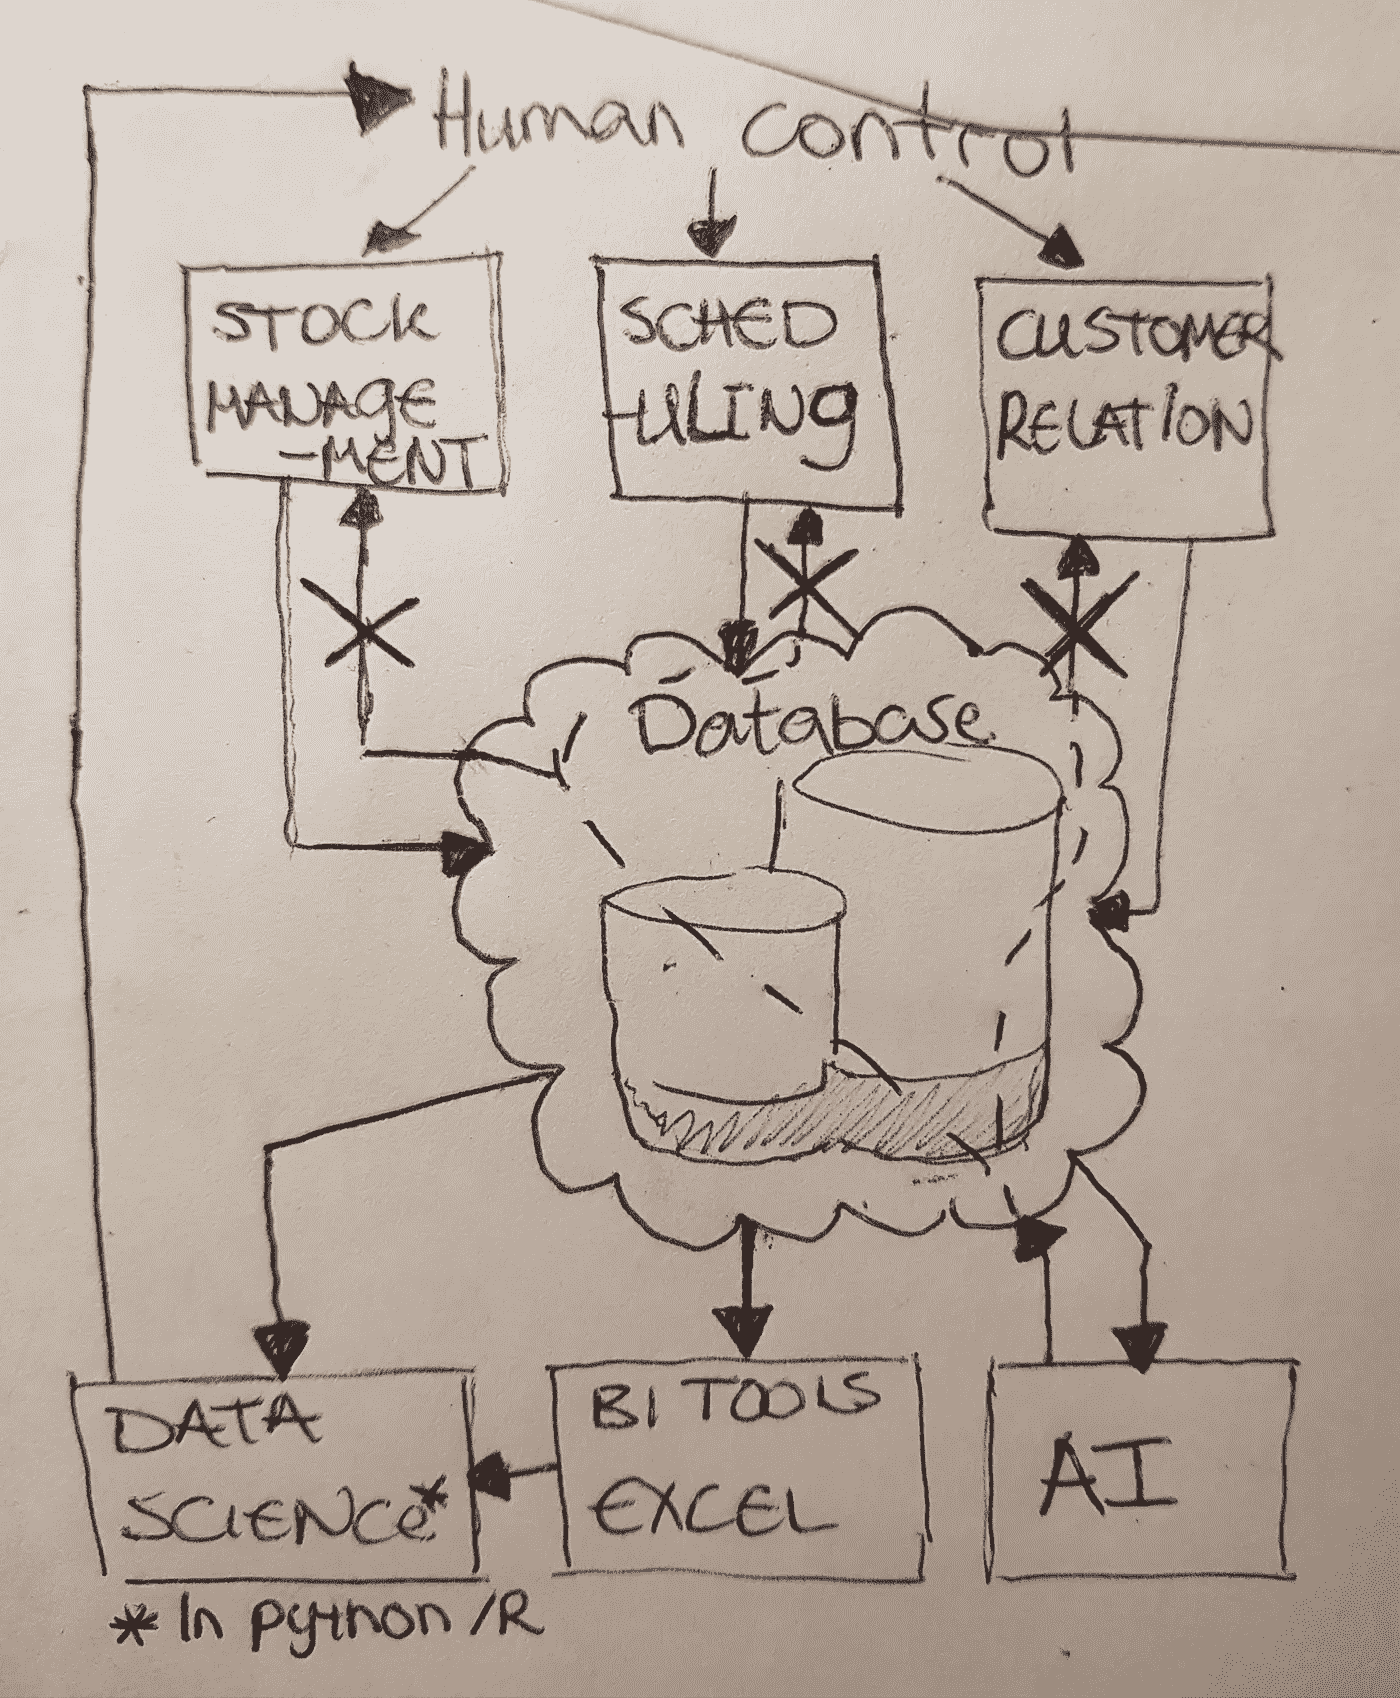 Human control
STOCK
MANAGE
-MENT
SCHED
-ULING
CUSTOMER
RELATION
Database
DATA
SCIENCE*
BI TOOLS
EXCEL
AI
* In python /R